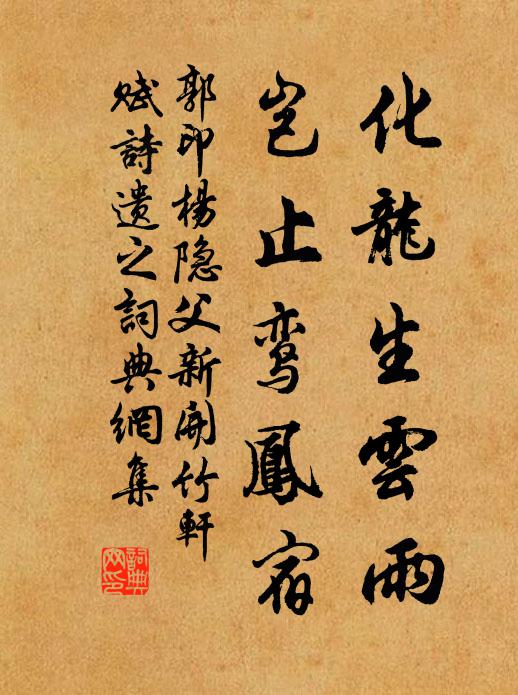 化龍生雲雨
岂止鸾鳳宿
郭印楊隐父新開竹軒
赋詩遗之詞典網集
詞典
网印